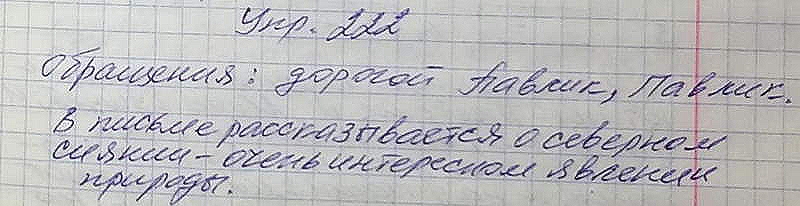 Упр. 222
Обращения: дорогой Павлик, Павлик.
В письме рассказывается о северном
сиянии - очень интересном явлении
природы.